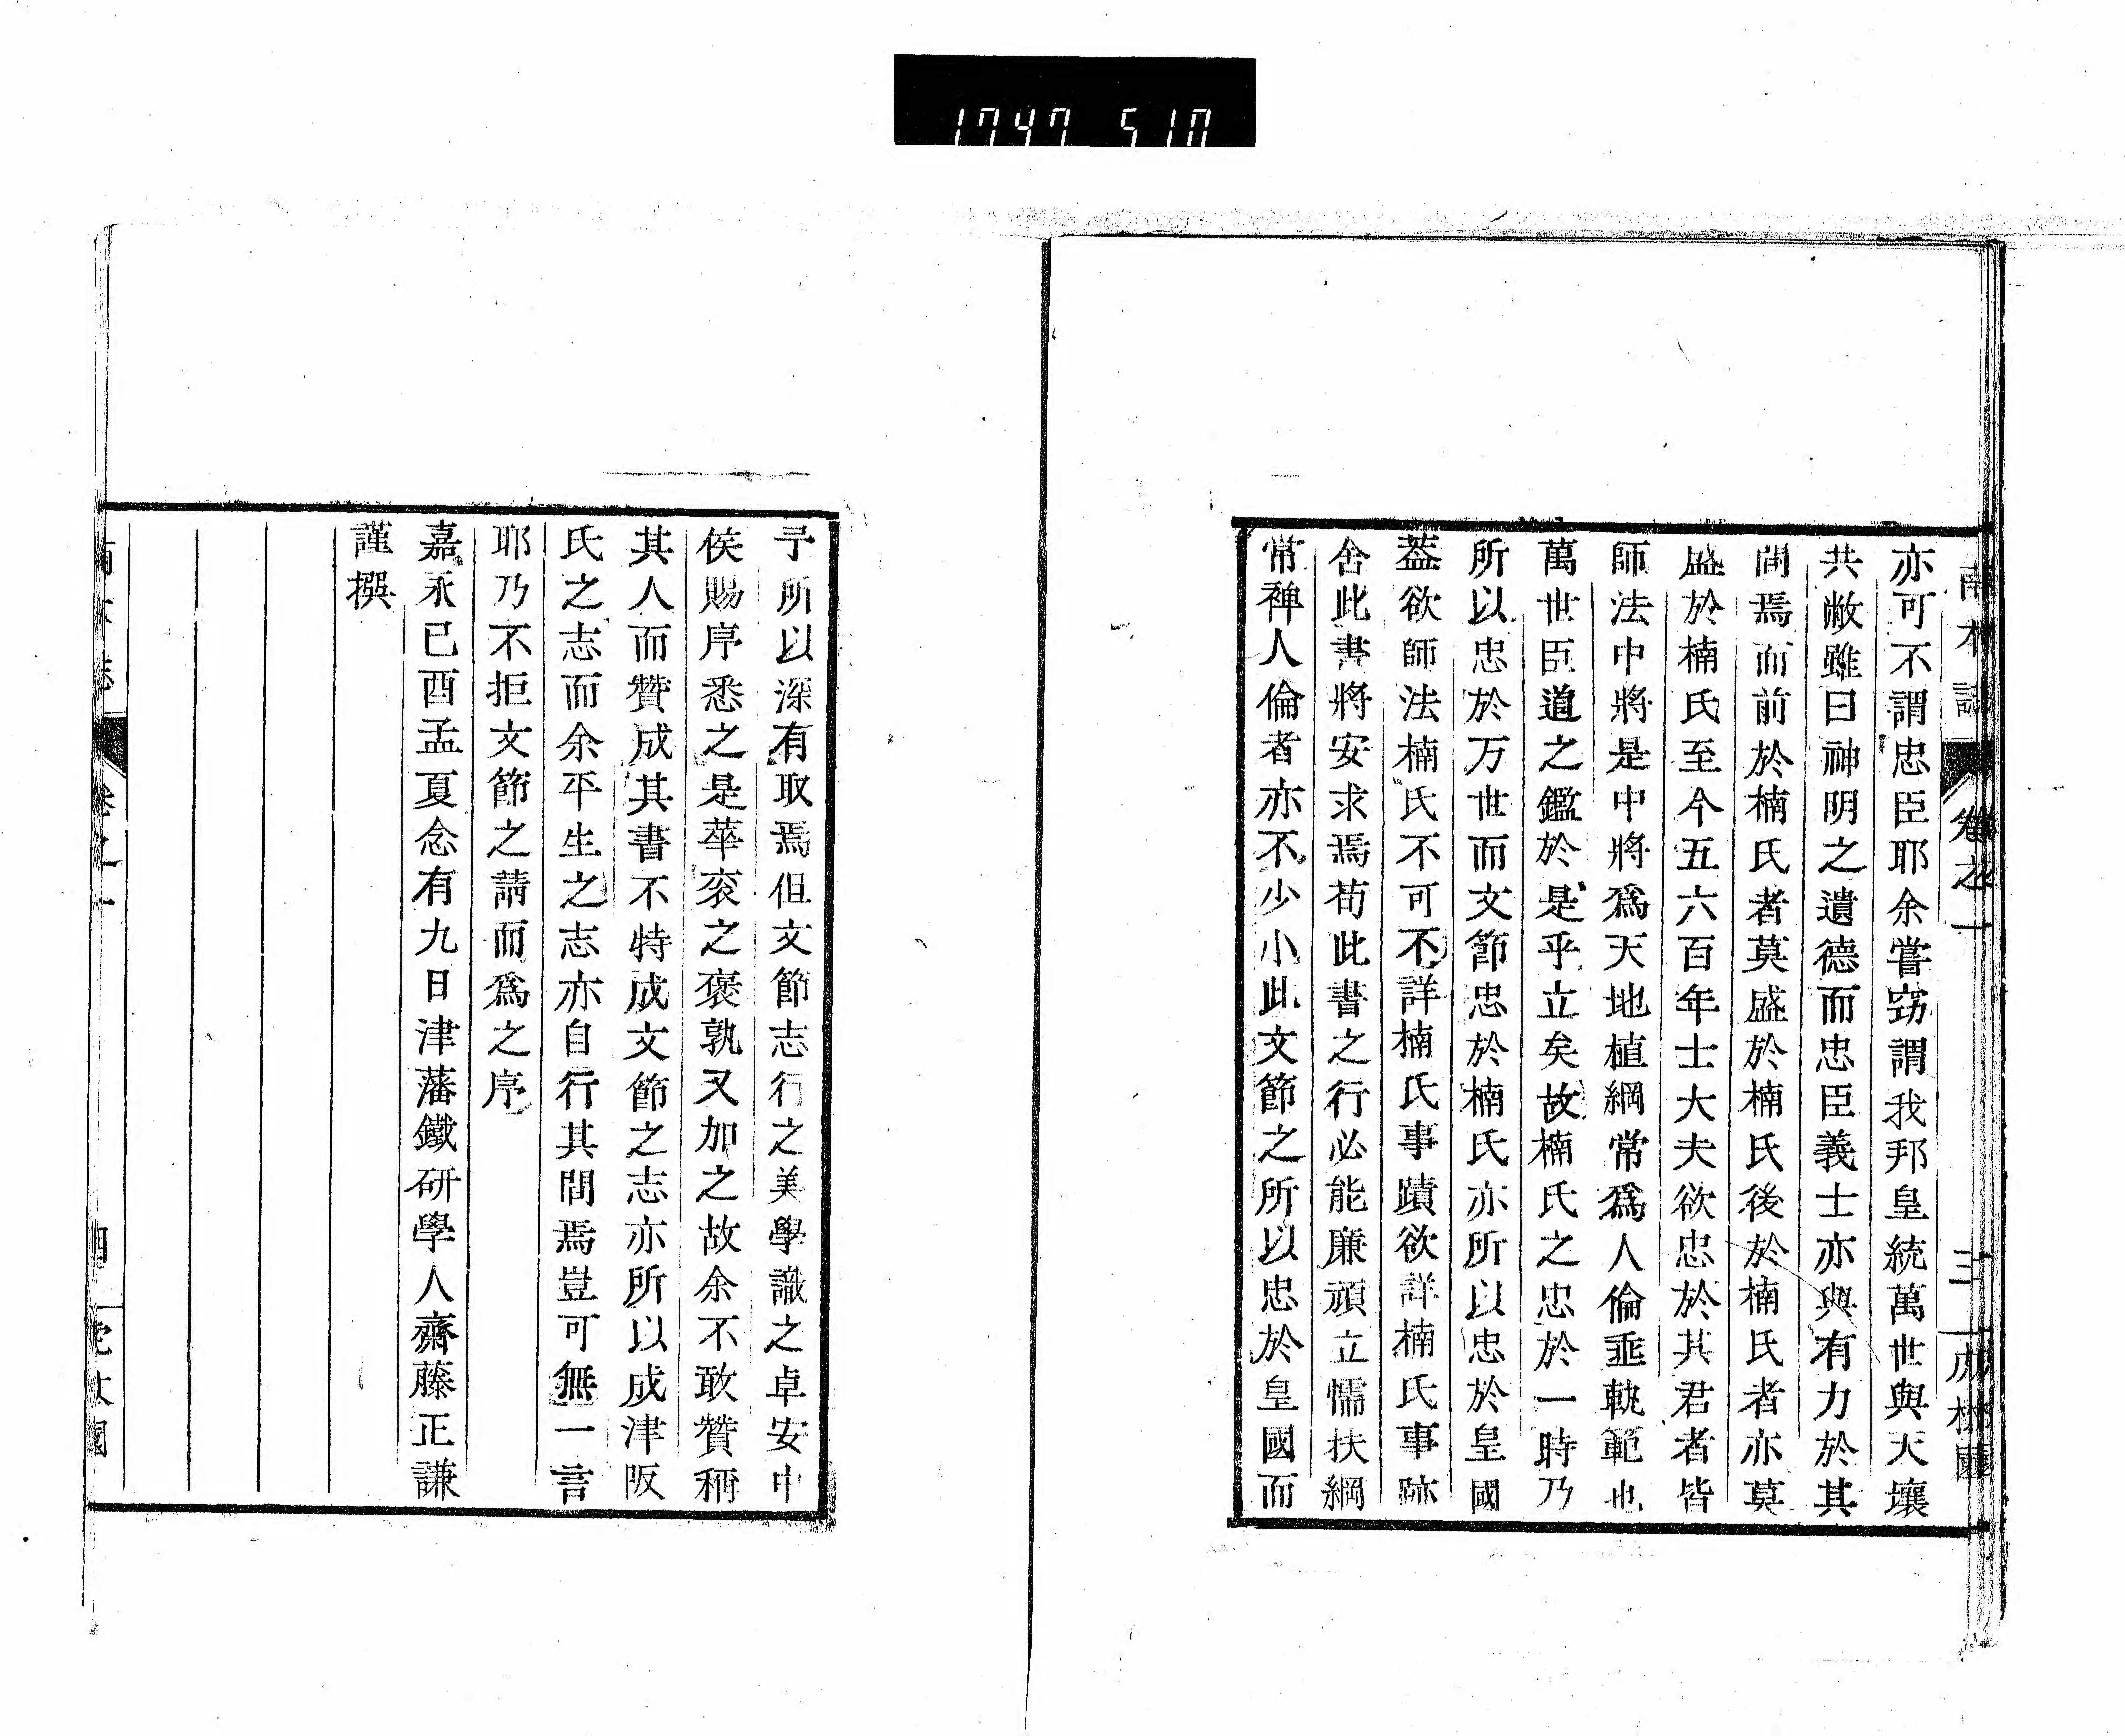 1747 510
南木誌 卷之一 三
亦可不謂忠臣耶余嘗窃謂我邦皇統萬世與天壤
共敝雖曰神明之遺德而忠臣義士亦與有力於其
間焉而前於楠氏者莫盛於楠氏後於楠氏者亦莫
盛於楠氏至今五六百年士大夫欲忠於其君者皆
師法中將是中將爲天地植綱常爲人倫垂軌範也
萬世臣道之鑑於是乎立矣故楠氏之忠於一時乃
所以忠於万世而文節忠於楠氏亦所以忠於皇國
葢欲師法楠氏不可不詳楠氏事蹟欲詳楠氏事跡
舍此書將安求焉苟此書之行必能廉頑立懦扶綱
常裨人倫者亦不少小此文節之所以忠於皇國而
予所以深有取焉但文節志行之美學識之卓安中
侯賜序悉之是華袞之褒孰又加之故余不敢贊稱
其人而贊成其書不特成文節之志亦所以成津阪
氏之志而余平生之志亦自行其間焉豈可無一言
耶乃不拒文節之請而爲之序
嘉永己酉孟夏念有九日津藩鐵研學人齋藤正謙
謹撰
卷之一 四